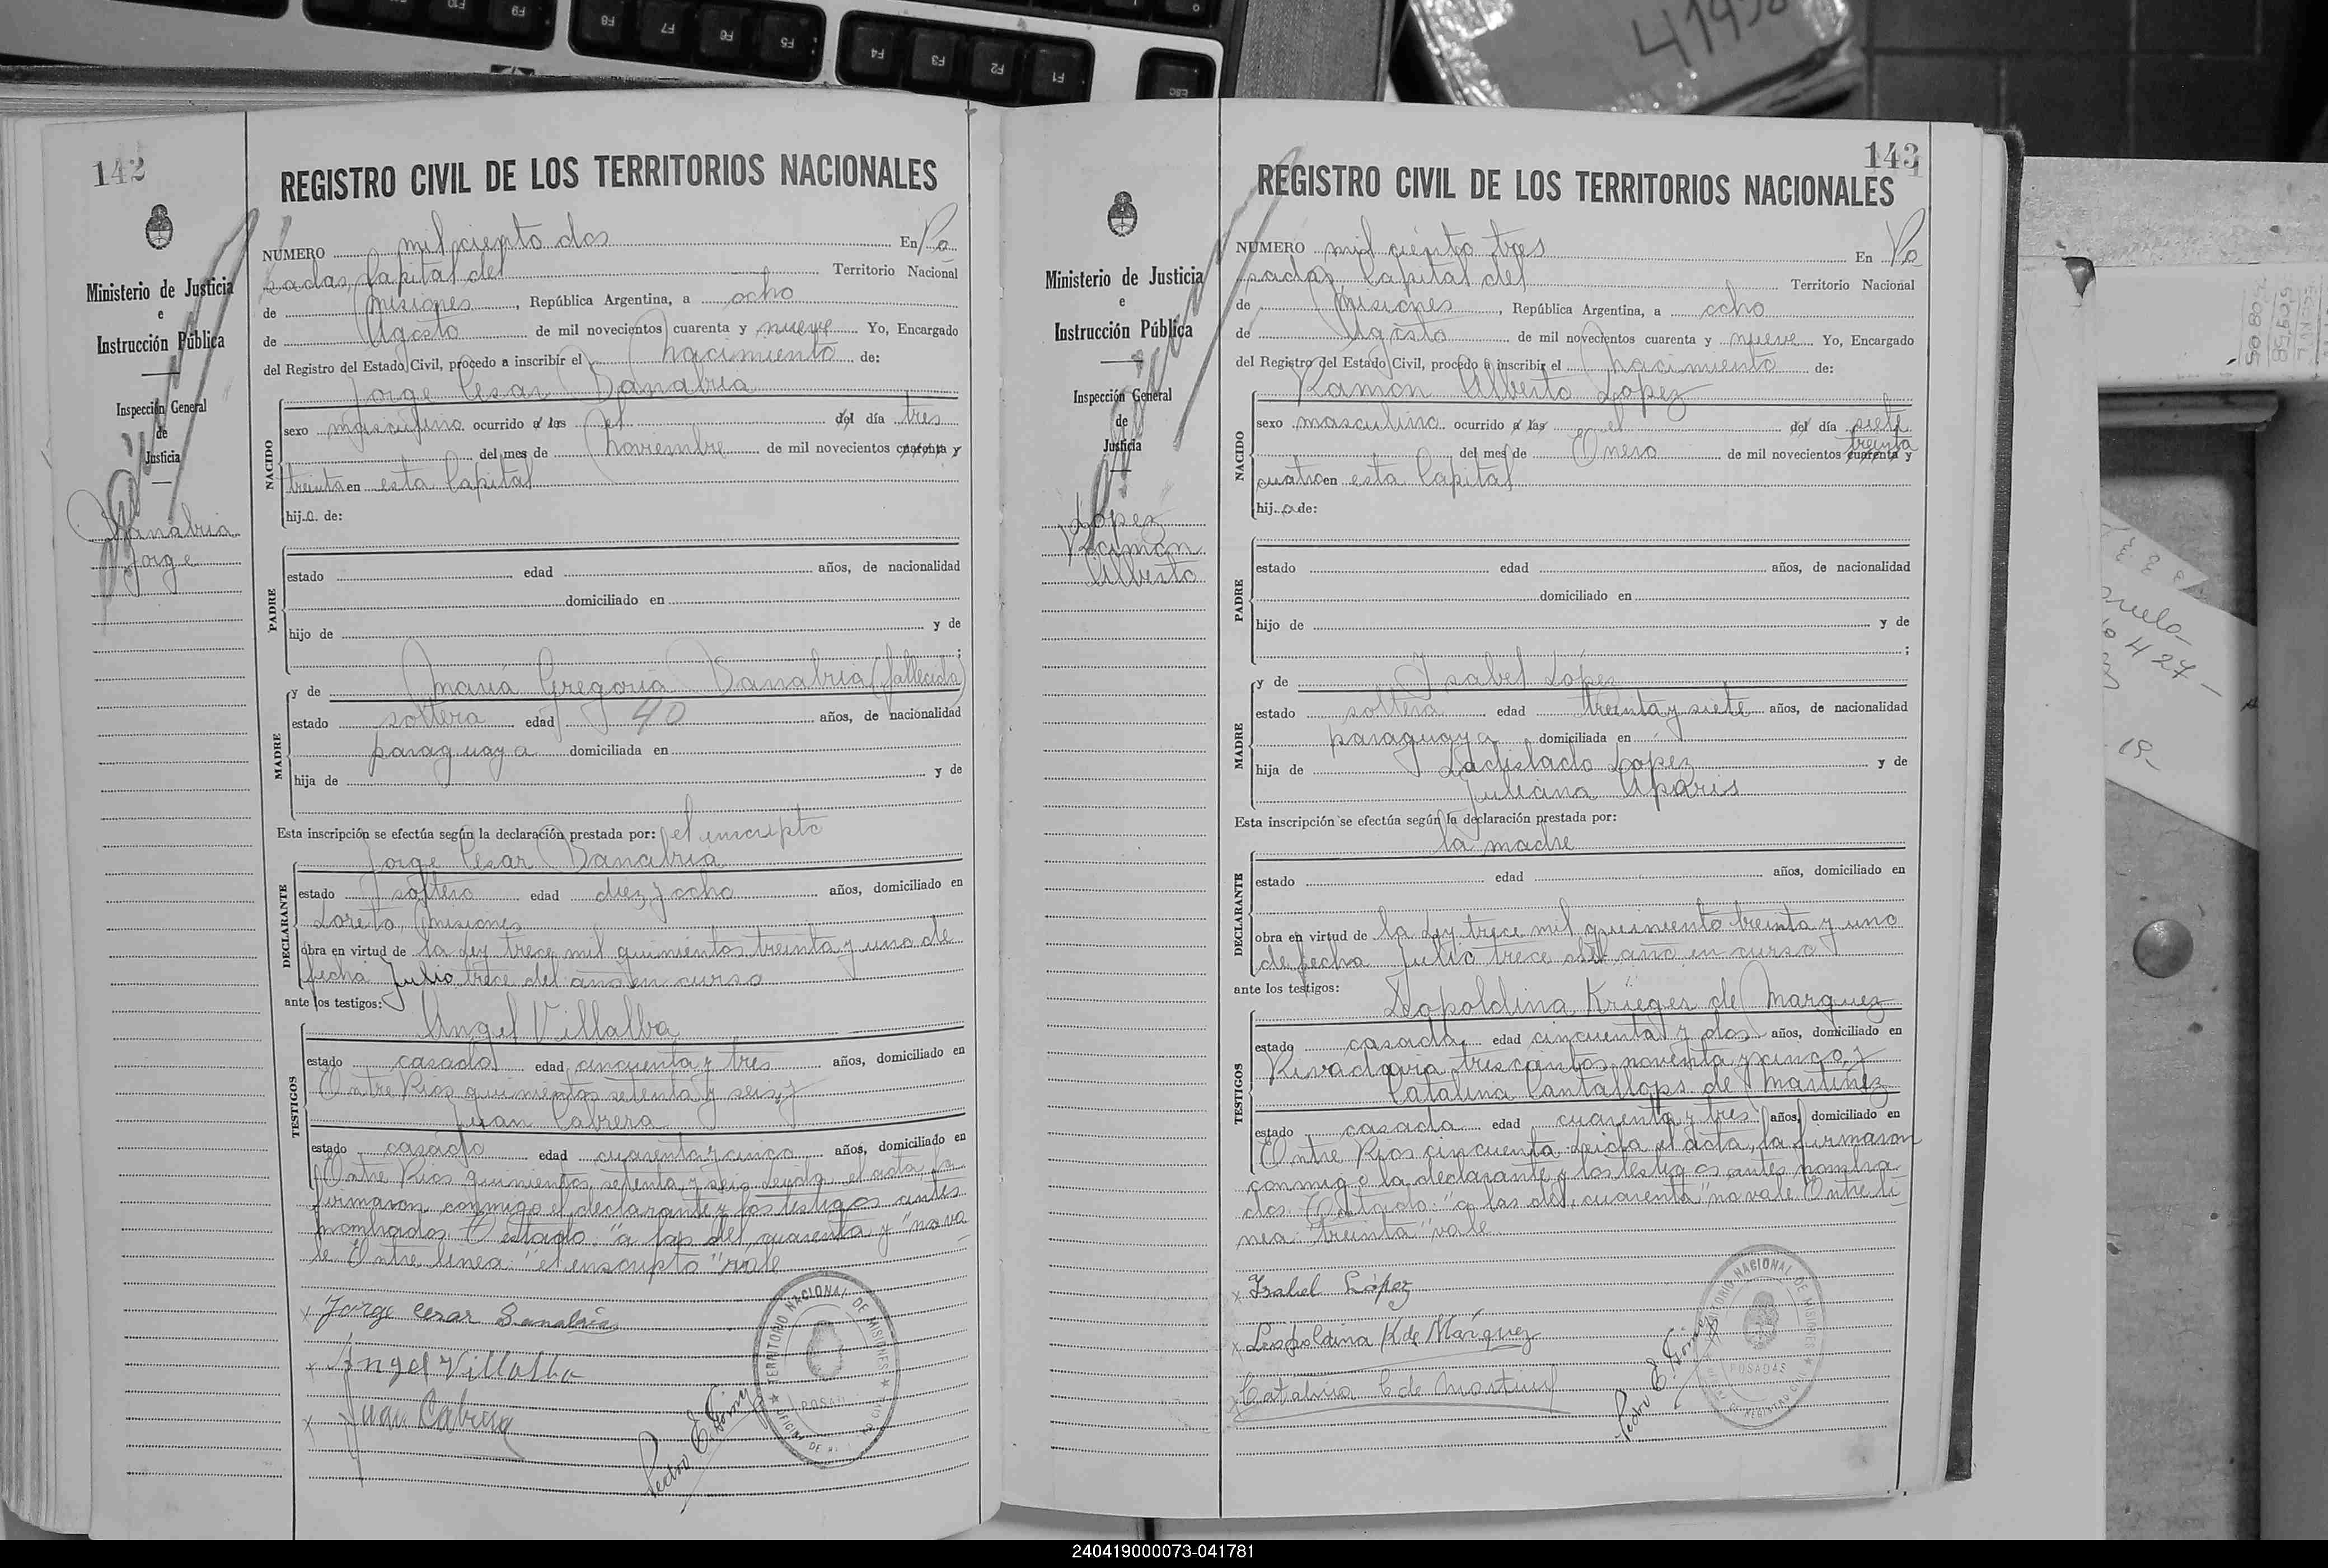 41938
142
Ministerio de Justicia
e
Instrucción Pública
Inspección General
de
Justicia
Sanabria
Jorge
REGISTRO CIVIL DE LOS TERRITORIOS NACIONALES
NUMERO mil ciento dos En Po
sadas, Capital del Territorio Nacional
de Misiones, República Argentina, a ocho
de Agosto de mil novecientos cuarenta y nueve Yo, Encargado
del Registro del Estado Civil, procedo a inscribir el nacimiento de:
Jorge Cesar Sanabria
NACIDO
sexo masculino ocurrido a las el del día tres
del mes de Noviembre de mil novecientos cuarenta y
treinta en esta Capital
hij.o. de:
PADRE
estado edad años, de nacionalidad
domiciliado en
hijo de y de
;
MADRE
y de María Gregoria Sanabria (fallecida)
estado soltera edad 40 años, de nacionalidad
paraguaya domiciliada en
hija de y de
Esta inscripción se efectúa según la declaración prestada por: el inscripto
DECLARANTE
Jorge Cesar Sanabria
estado soltero edad diez y ocho años, domiciliado en
Loreto, Misiones
obra en virtud de la Ley trece mil quinientos treinta y uno de
fecha Julio trece del año en curso
ante los testigos:
TESTIGOS
Angel Villalba
estado casado edad cincuenta y tres años, domiciliado en
Entre Rios quinientos setenta y seis y
Juan Cabrera
estado casado edad cuarenta y cinco años, domiciliado en
Entre Rios quinientos setenta y seis Leida el acta, la
firmaron conmigo el declarante y los testigos antes
nombrados. Testado: "a las del, cuarenta y "no va
le. Entre linea: "el inscripto" vale
x Jorge Cesar Sanabria
x Angel Villalba
x Juan Cabrera
Pedro E. Giménez
TERRITORIO NACIONAL DE MISIONES
POSADAS
143
Ministerio de Justicia
e
Instrucción Pública
Inspección General
de
Justicia
Lopez
Ramon
Alberto
REGISTRO CIVIL DE LOS TERRITORIOS NACIONALES
NUMERO mil ciento tres En Po
sadas, Capital del Territorio Nacional
de Misiones, República Argentina, a ocho
de Agosto de mil novecientos cuarenta y nueve Yo, Encargado
del Registro del Estado Civil, procedo a inscribir el nacimiento de:
Ramon Alberto Lopez
NACIDO
sexo masculino ocurrido a las el del día siete
treinta
del mes de Enero de mil novecientos cuarenta y
cuatro en esta Capital
hij.o.de:
PADRE
estado edad años, de nacionalidad
domiciliado en
hijo de y de
;
MADRE
y de Isabel Lopez
estado soltera edad treinta y siete años, de nacionalidad
paraguaya domiciliada en
hija de Ladislado Lopez y de
Juliana Aparis
Esta inscripción se efectúa según la declaración prestada por:
DECLARANTE
la madre
estado edad años, domiciliado en
obra en virtud de la Ley trece mil quiniento treinta y uno
de fecha Julio trece del año en curso
ante los testigos:
TESTIGOS
Leopoldina Krieger de Marquez
estado casada edad cincuenta y dos años, domiciliado en
Rivadavia trescientos noventa y cinco, y
Catalina Cantallops de Martinez
estado casada edad cuarenta y tres años, domiciliado en
Entre Rios cincuenta. Leida el acta, la firmaron
conmigo la declarante y los testigos antes nombra
dos. Testado: "a las del, cuarenta" no vale. Entre li
nea: "treinta" vale.
x Isabel López
x Leopoldina K de Márquez
x Catalina C de Martinez
Pedro E. Giménez
TERRITORIO NACIONAL DE MISIONES
POSADAS
240419000073-041781